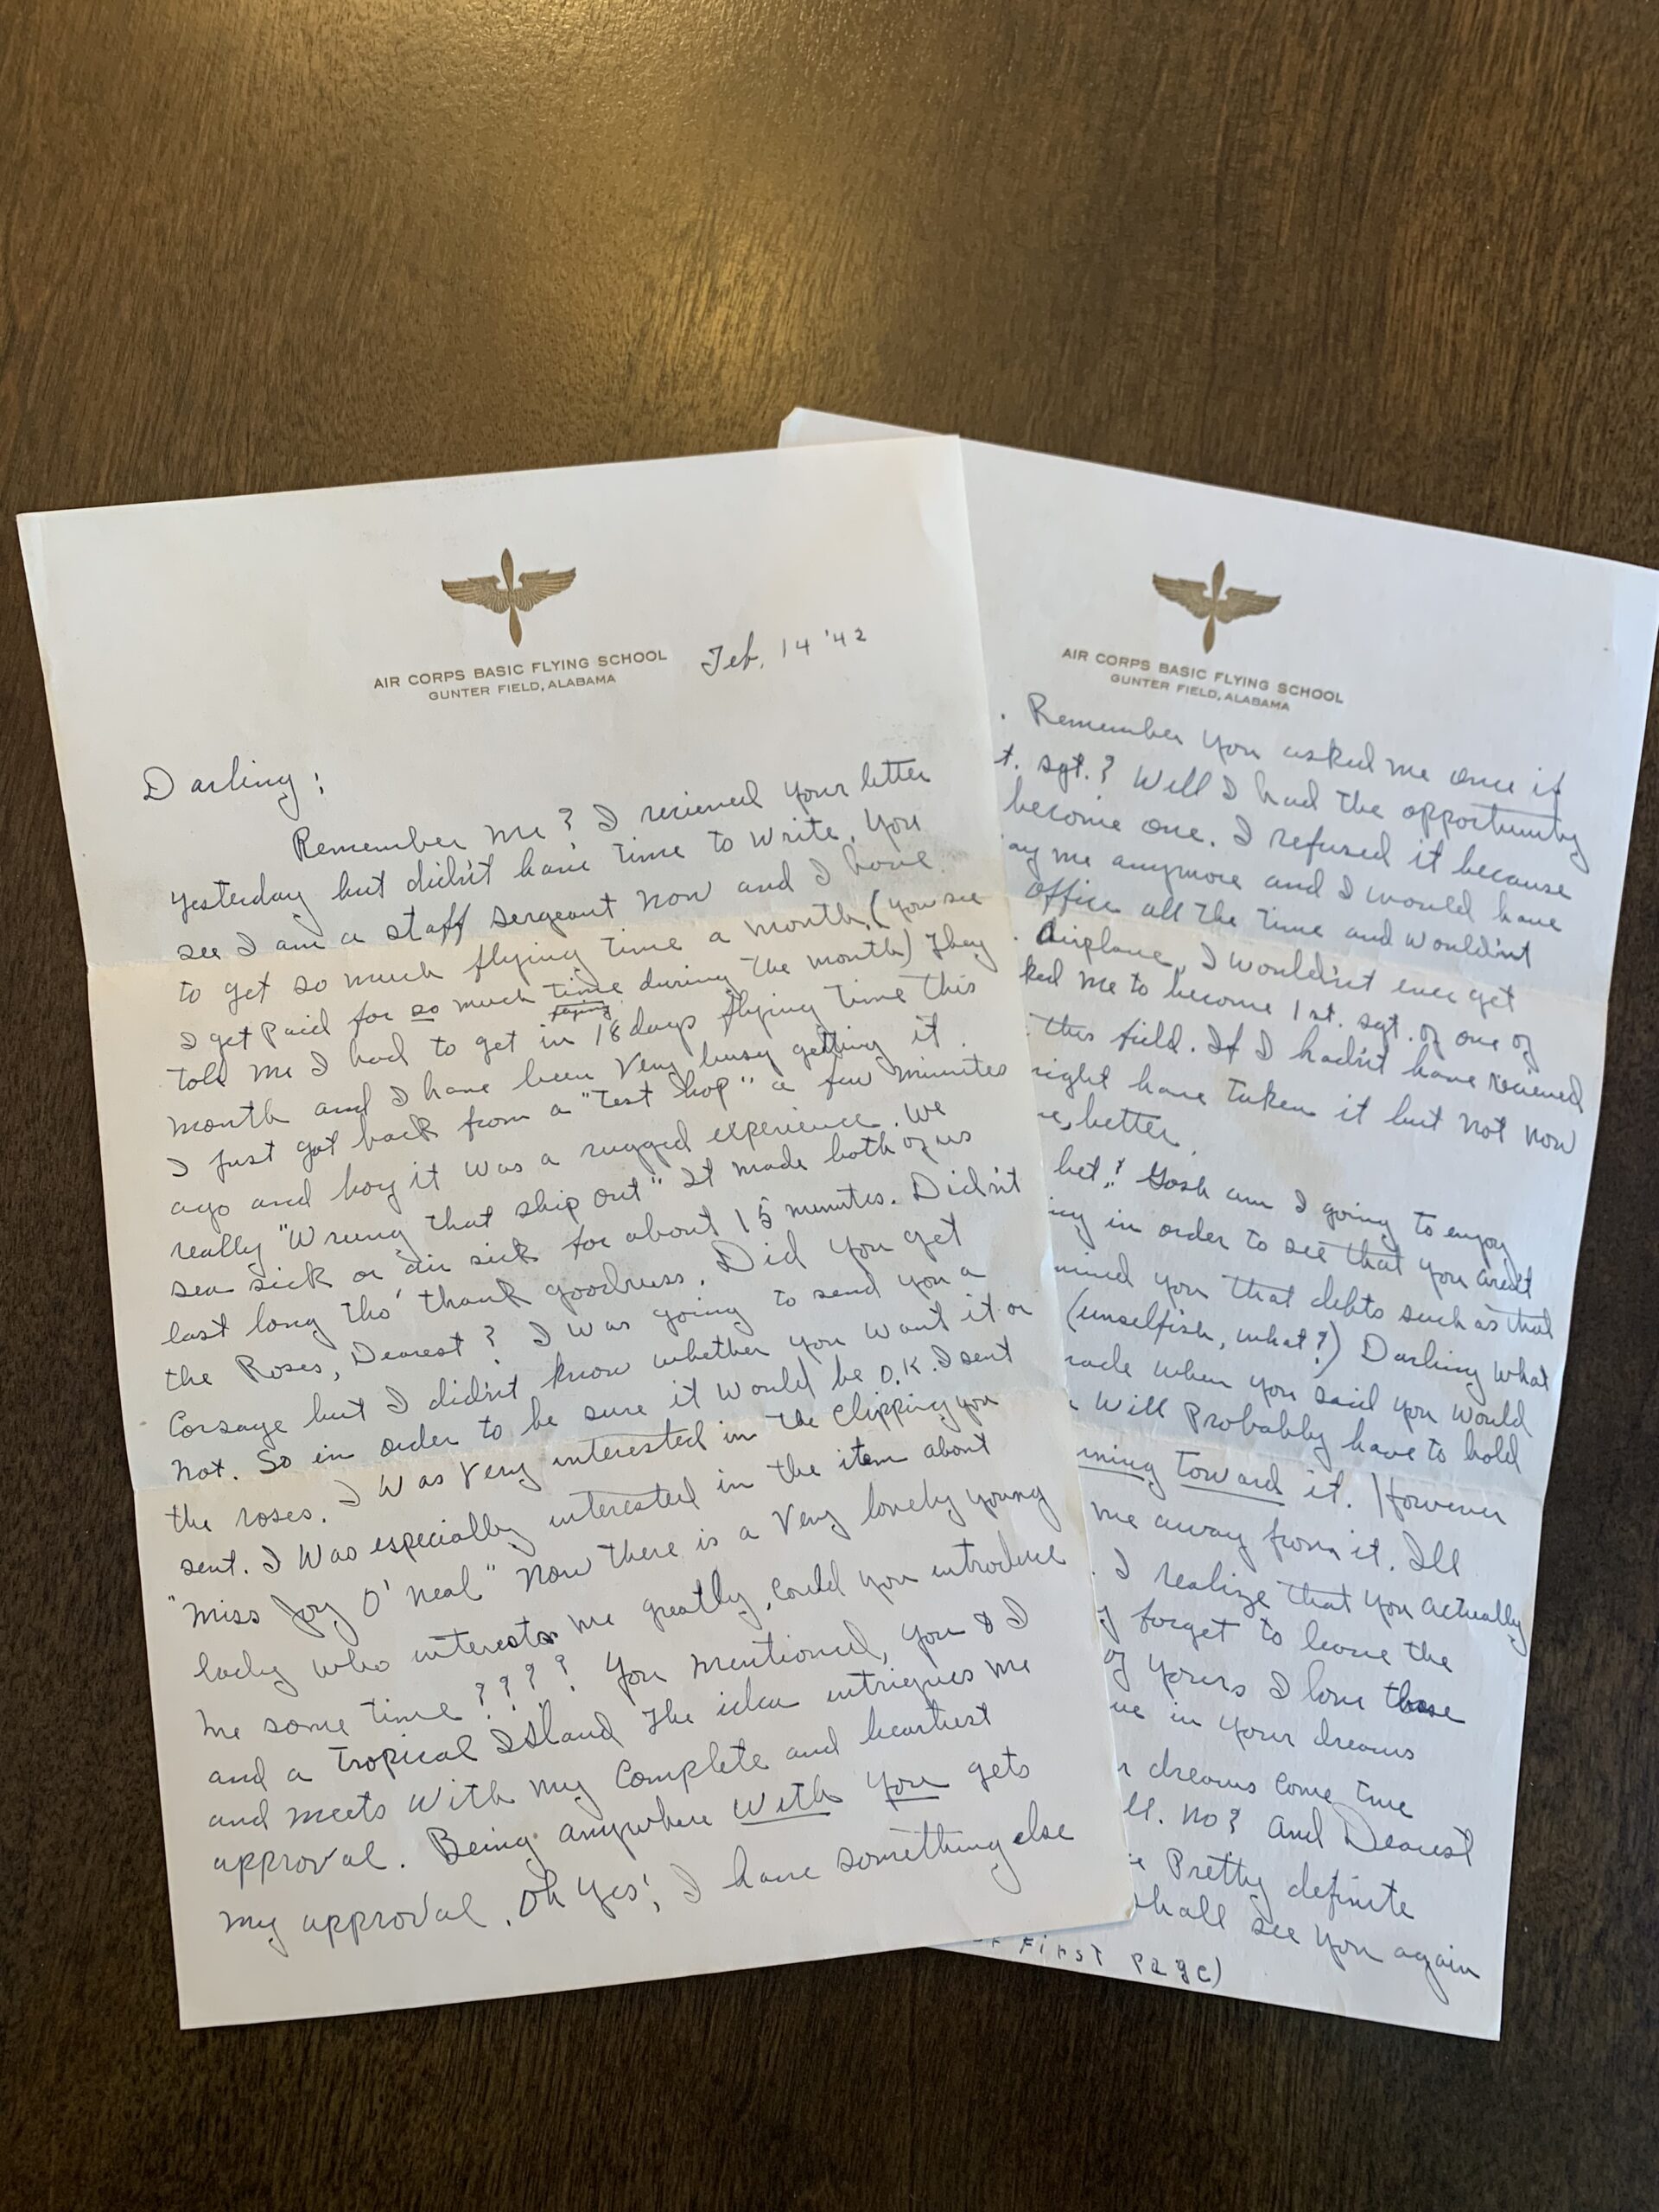 AIR CORPS BASIC FLYING SCHOOL
GUNTER FIELD, ALABAMA
Feb. 14 '42
Darling;
Remember me? I recieved your letter
yesterday but didn't have time to write. You
see I am a staff sergeant now and I have
to get so much flying time a month. (you see
I get paid for so much time during the month) They
told me I had to get in 18 days flying time this
month and I have been very busy getting it.
I just got back from a "test hop" a few minutes
ago and boy it was a rugged experience. We
really "wrung that ship out" It made both of us
sea sick or air sick for about 15 minutes. Didn't
last long tho' thank goodness. Did you get
the Roses, Dearest? I was going to send you a
Corsage but I didn't know whether you want it or
not. So in order to be sure it would be O.K. I sent
the roses. I was very interested in the clipping you
sent. I was especially interested in the item about
"Miss Joy O'Neal" Now there is a very lovely young
lady who interests me greatly, could you introduce
me some time???? You mentioned, you & I
and a Tropical Island The idea intrigues me
and meets with my complete and heartiest
approval. Being anywhere with you gets
my approval. Oh yes!, I have something else
AIR CORPS BASIC FLYING SCHOOL
GUNTER FIELD, ALABAMA
. Remember you asked me once if
t. sgt.? Well I had the opportunity
become one. I refused it because
ay me anymore and I would have
office all the time and wouldn't
. Airplane, I wouldn't ever get
ked me to become 1st. sgt. of one of
this field. If I hadn't have recieved
right have taken it but not now
e, better.
bet!! Gosh am I going to enjoy
in order to see that you aren't
mind you that debts such as that
(unselfish, what?) Darling what
made when you said you would
will probably have to hold
ning toward it. However
me away from it. Ill
. I realize that you actually
y forget to leave the
of yours I love those
ve in your dreams
r dreams come true
ll. no? And Dearest
e Pretty definite
shall see you again
First Page)